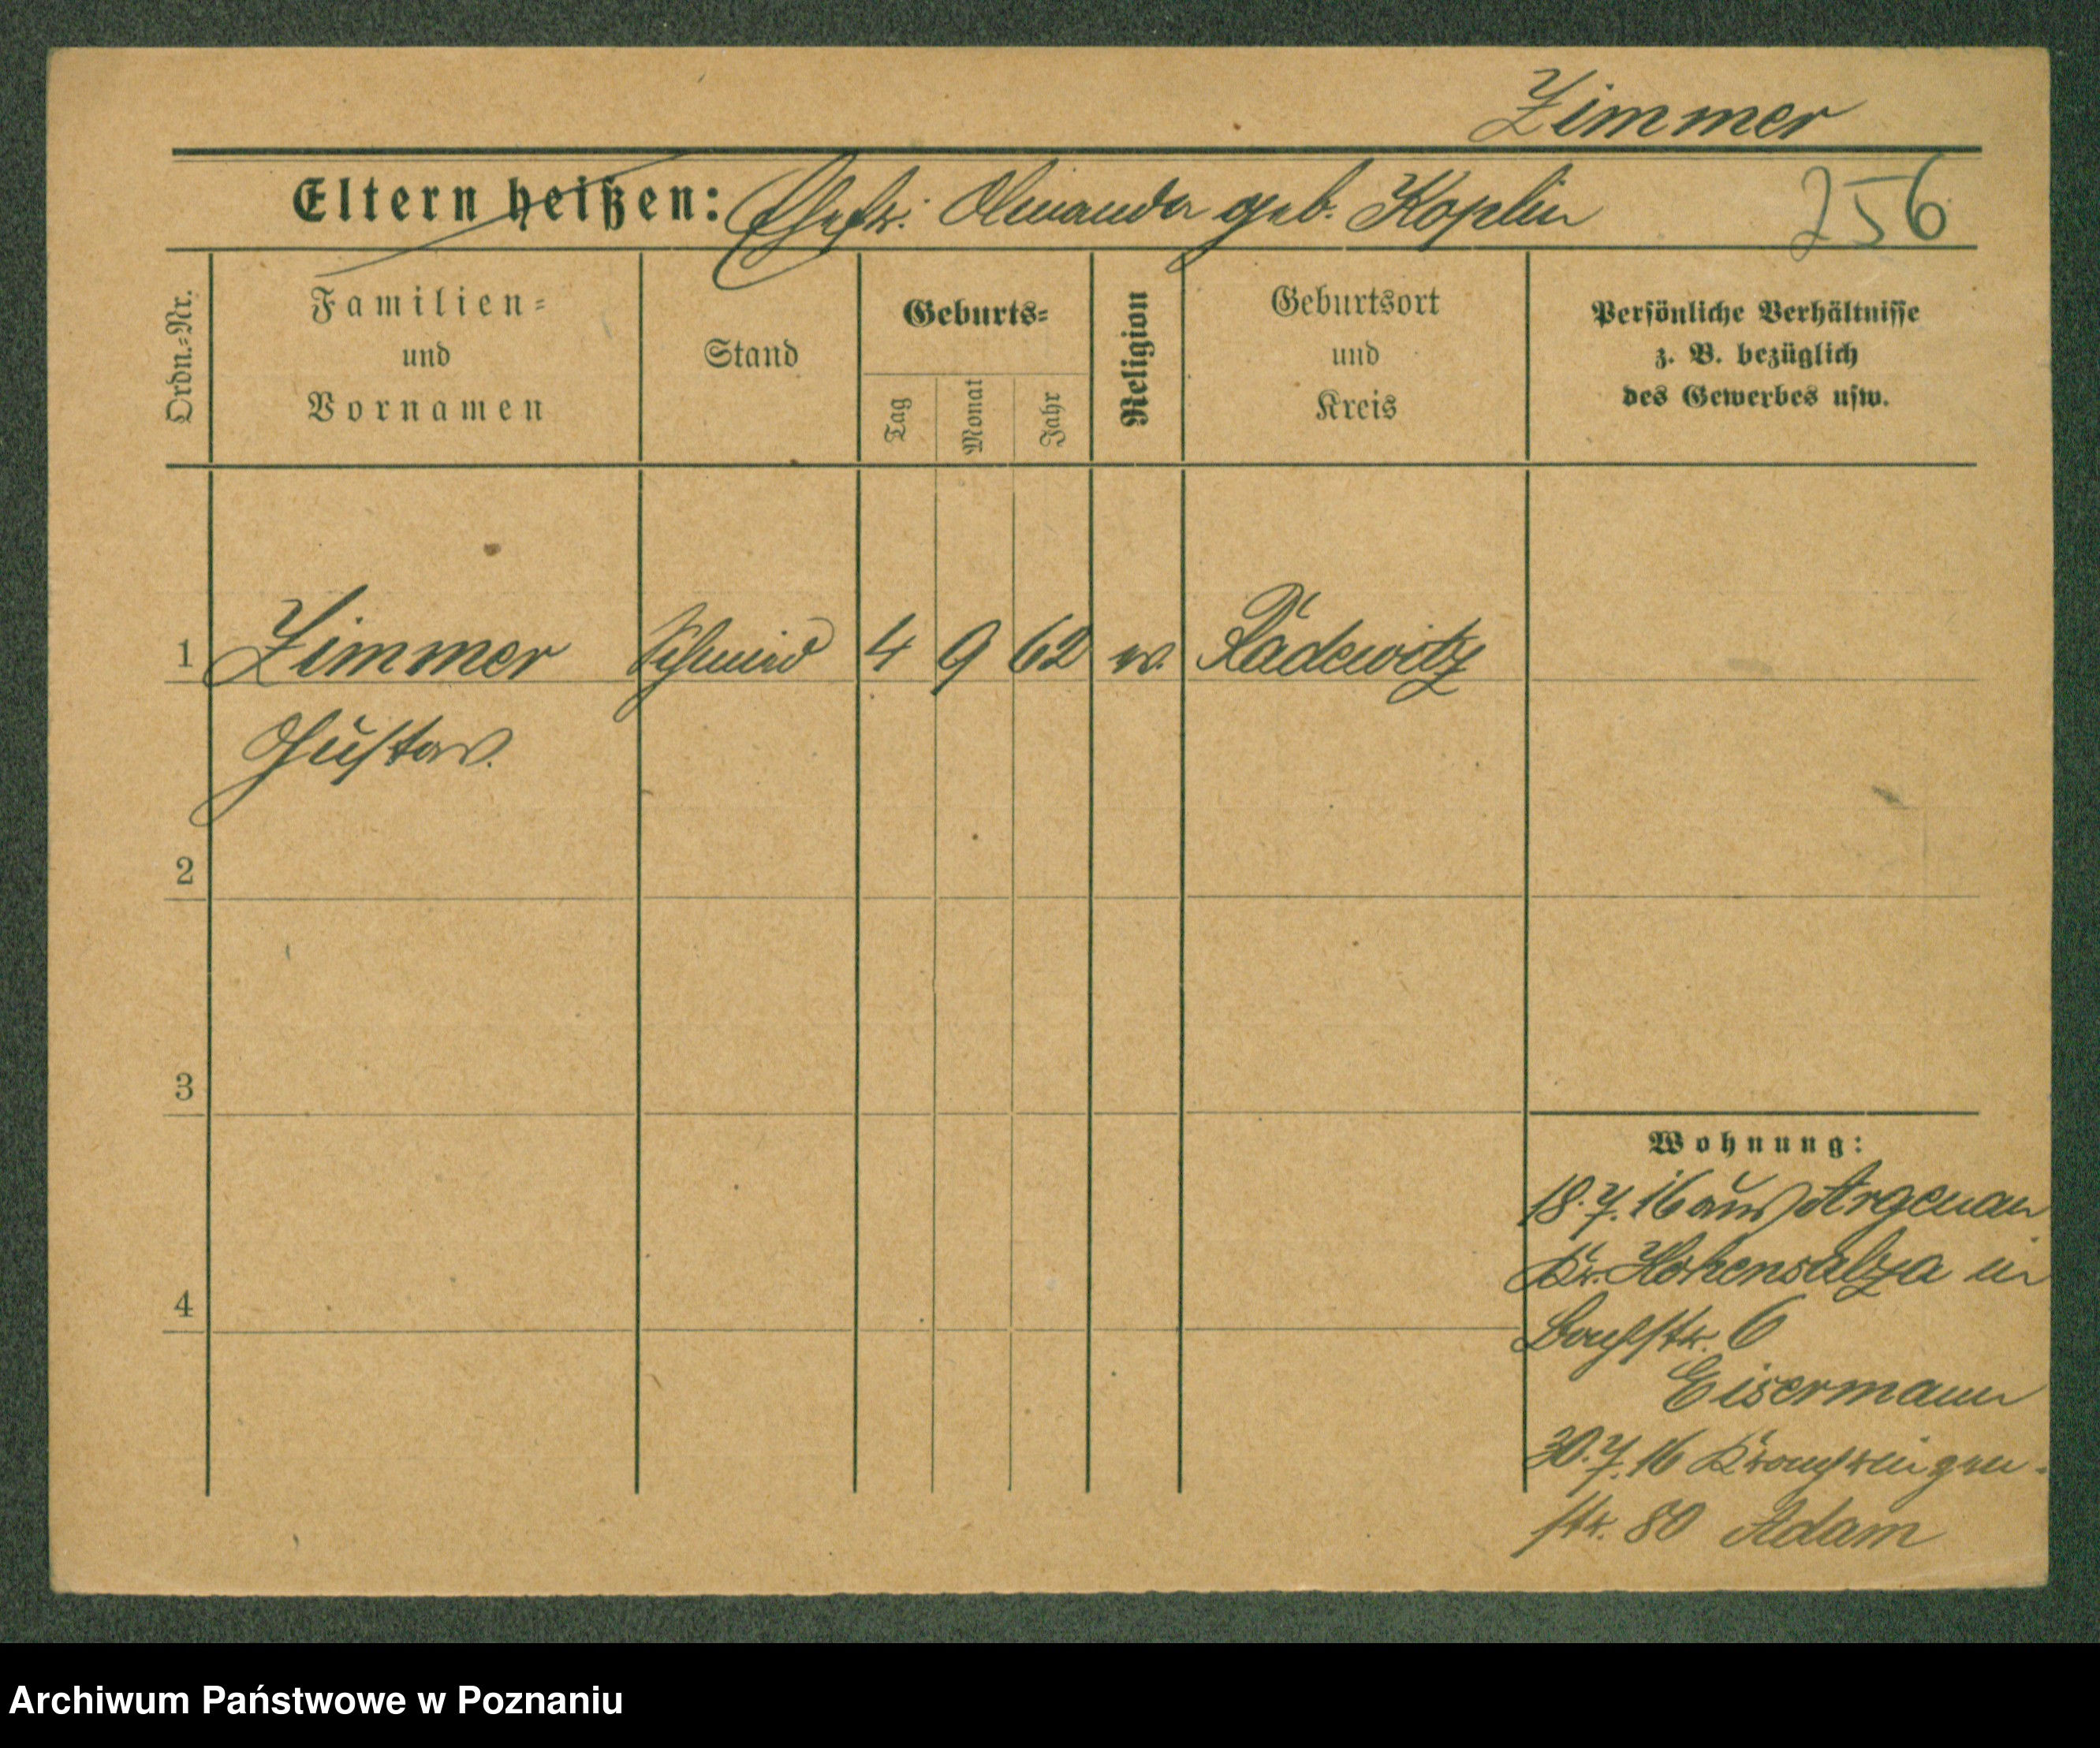 Zimmer
Eltern heißen: Ehefr: Amanda geb. Koplin
256
Ordn.-Nr.
Familien-
und
Vornamen
Stand
Geburts-
Tag
Monat
Jahr
Religion
Geburtsort
und
Kreis
Persönliche Verhältnisse
z. B. bezüglich
des Gewerbes usw.
1 Zimmer Schmied 4 9 62 ev. Kädewitz
Gustav.
2
3
4
Wohnung:
18.7.16 aus Argenau
Kr. Hohensalza in
6
Eisermann
30.7.16 Kronprinzen-
str. 80 Adam
Archiwum Państwowe w Poznaniu